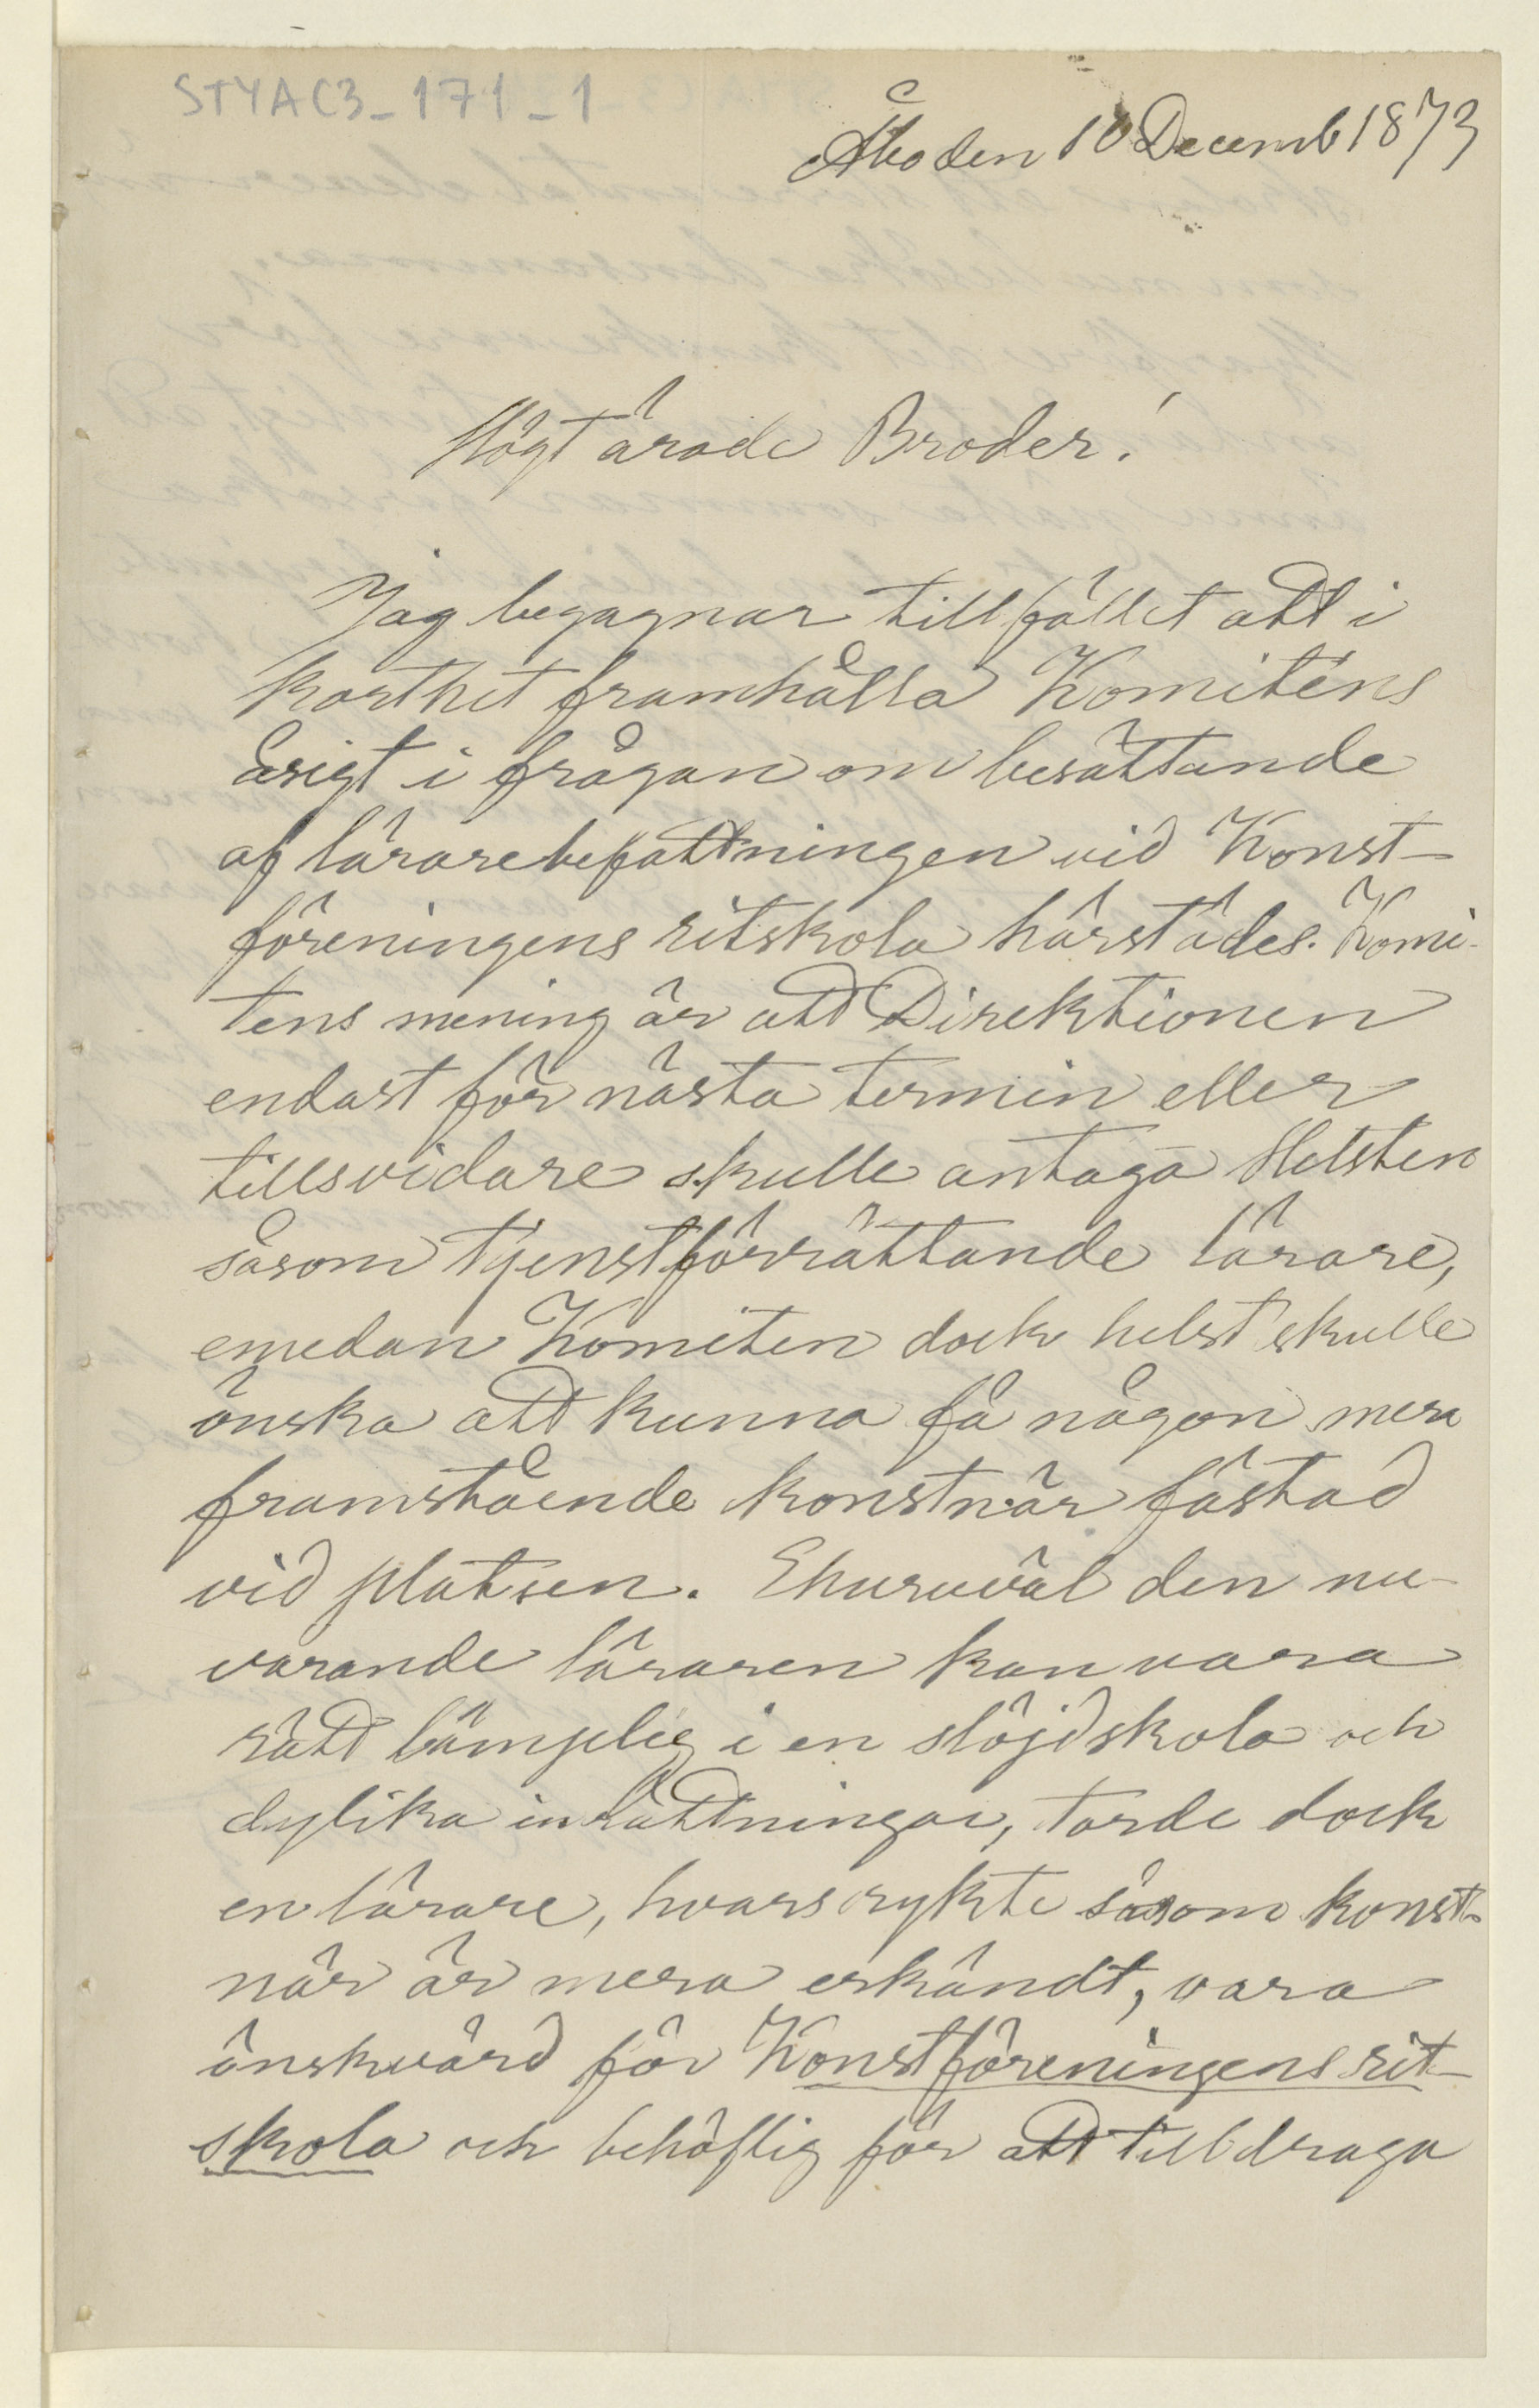 STYAC3_171_1
Åbo den 10 Decemb 1873
Högt ärade Broder!
Jag begagnar tillfället att i
korthet framhålla Komiténs
åsigt i frågan om besättande
af lärarebefattningen vid Konst-
föreningens ritskola härstädes. Komi-
tens mening är att Direktionen
endast för nästa termin eller
tillsvidare skulle antaga Helsten
såsom tjenstförrättande lärare,
emedan Komiten dock helst skulle
önska att kunna få någon mera
framstående konstnär fästad
vid platsen. Ehuruväl den nu-
varande läraren kan vara
rätt lämplig i en slöjdskola och
dylika inrättningar, torde dock
en lärare, hvars rykte såsom konst-
när är mera erkändt, vara
önskvärd för Konstföreningens rit-
skola och behöflig för att tilldraga